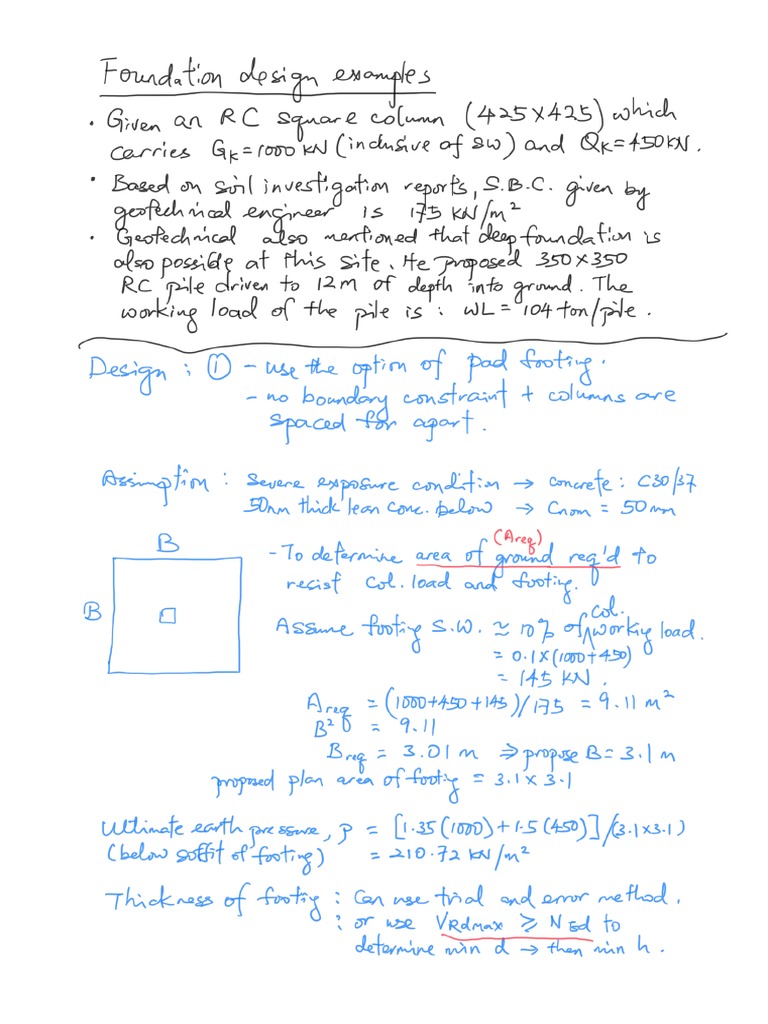 Foundation design examples
• Given an RC square column (425×425) which
carries GK=1000KN (inclusive of SW) and QK=450KN.
• Based on soil investigation reports, S.B.C. given by
geotechnical engineer is 175 KN/m²
• Geotechnical also mentioned that deep foundation is
also possible at this site. He proposed 350×350
RC pile driven to 12m of depth into ground. The
working load of the pile is : WL = 104 ton/pile.
Design : ① - use the option of pad footing.
- no boundary constraint + columns are
spaced far apart.
Assumption : Severe exposure condition → concrete : C30/37
50mm thick lean conc. below → Cnom = 50mm
B
B
(Areq)
- To determine area of ground req'd to
resist col. load and footing.
Assume footing S.W. ≈ 10% of col. working load.
= 0.1×(1000+450)
= 145 KN.
Areq = (1000+450+145)/175 = 9.11 m²
B² = 9.11
Breq = 3.01 m ⇒ propose B = 3.1 m
proposed plan area of footing = 3.1×3.1
Ultimate earth pressure, P = [1.35(1000)+1.5(450)]/(3.1×3.1)
(below soffit of footing) = 210.72 KN/m²
Thickness of footing : Can use trial and error method.
: or use VRdmax ≥ NEd to
determine min d → then min h.